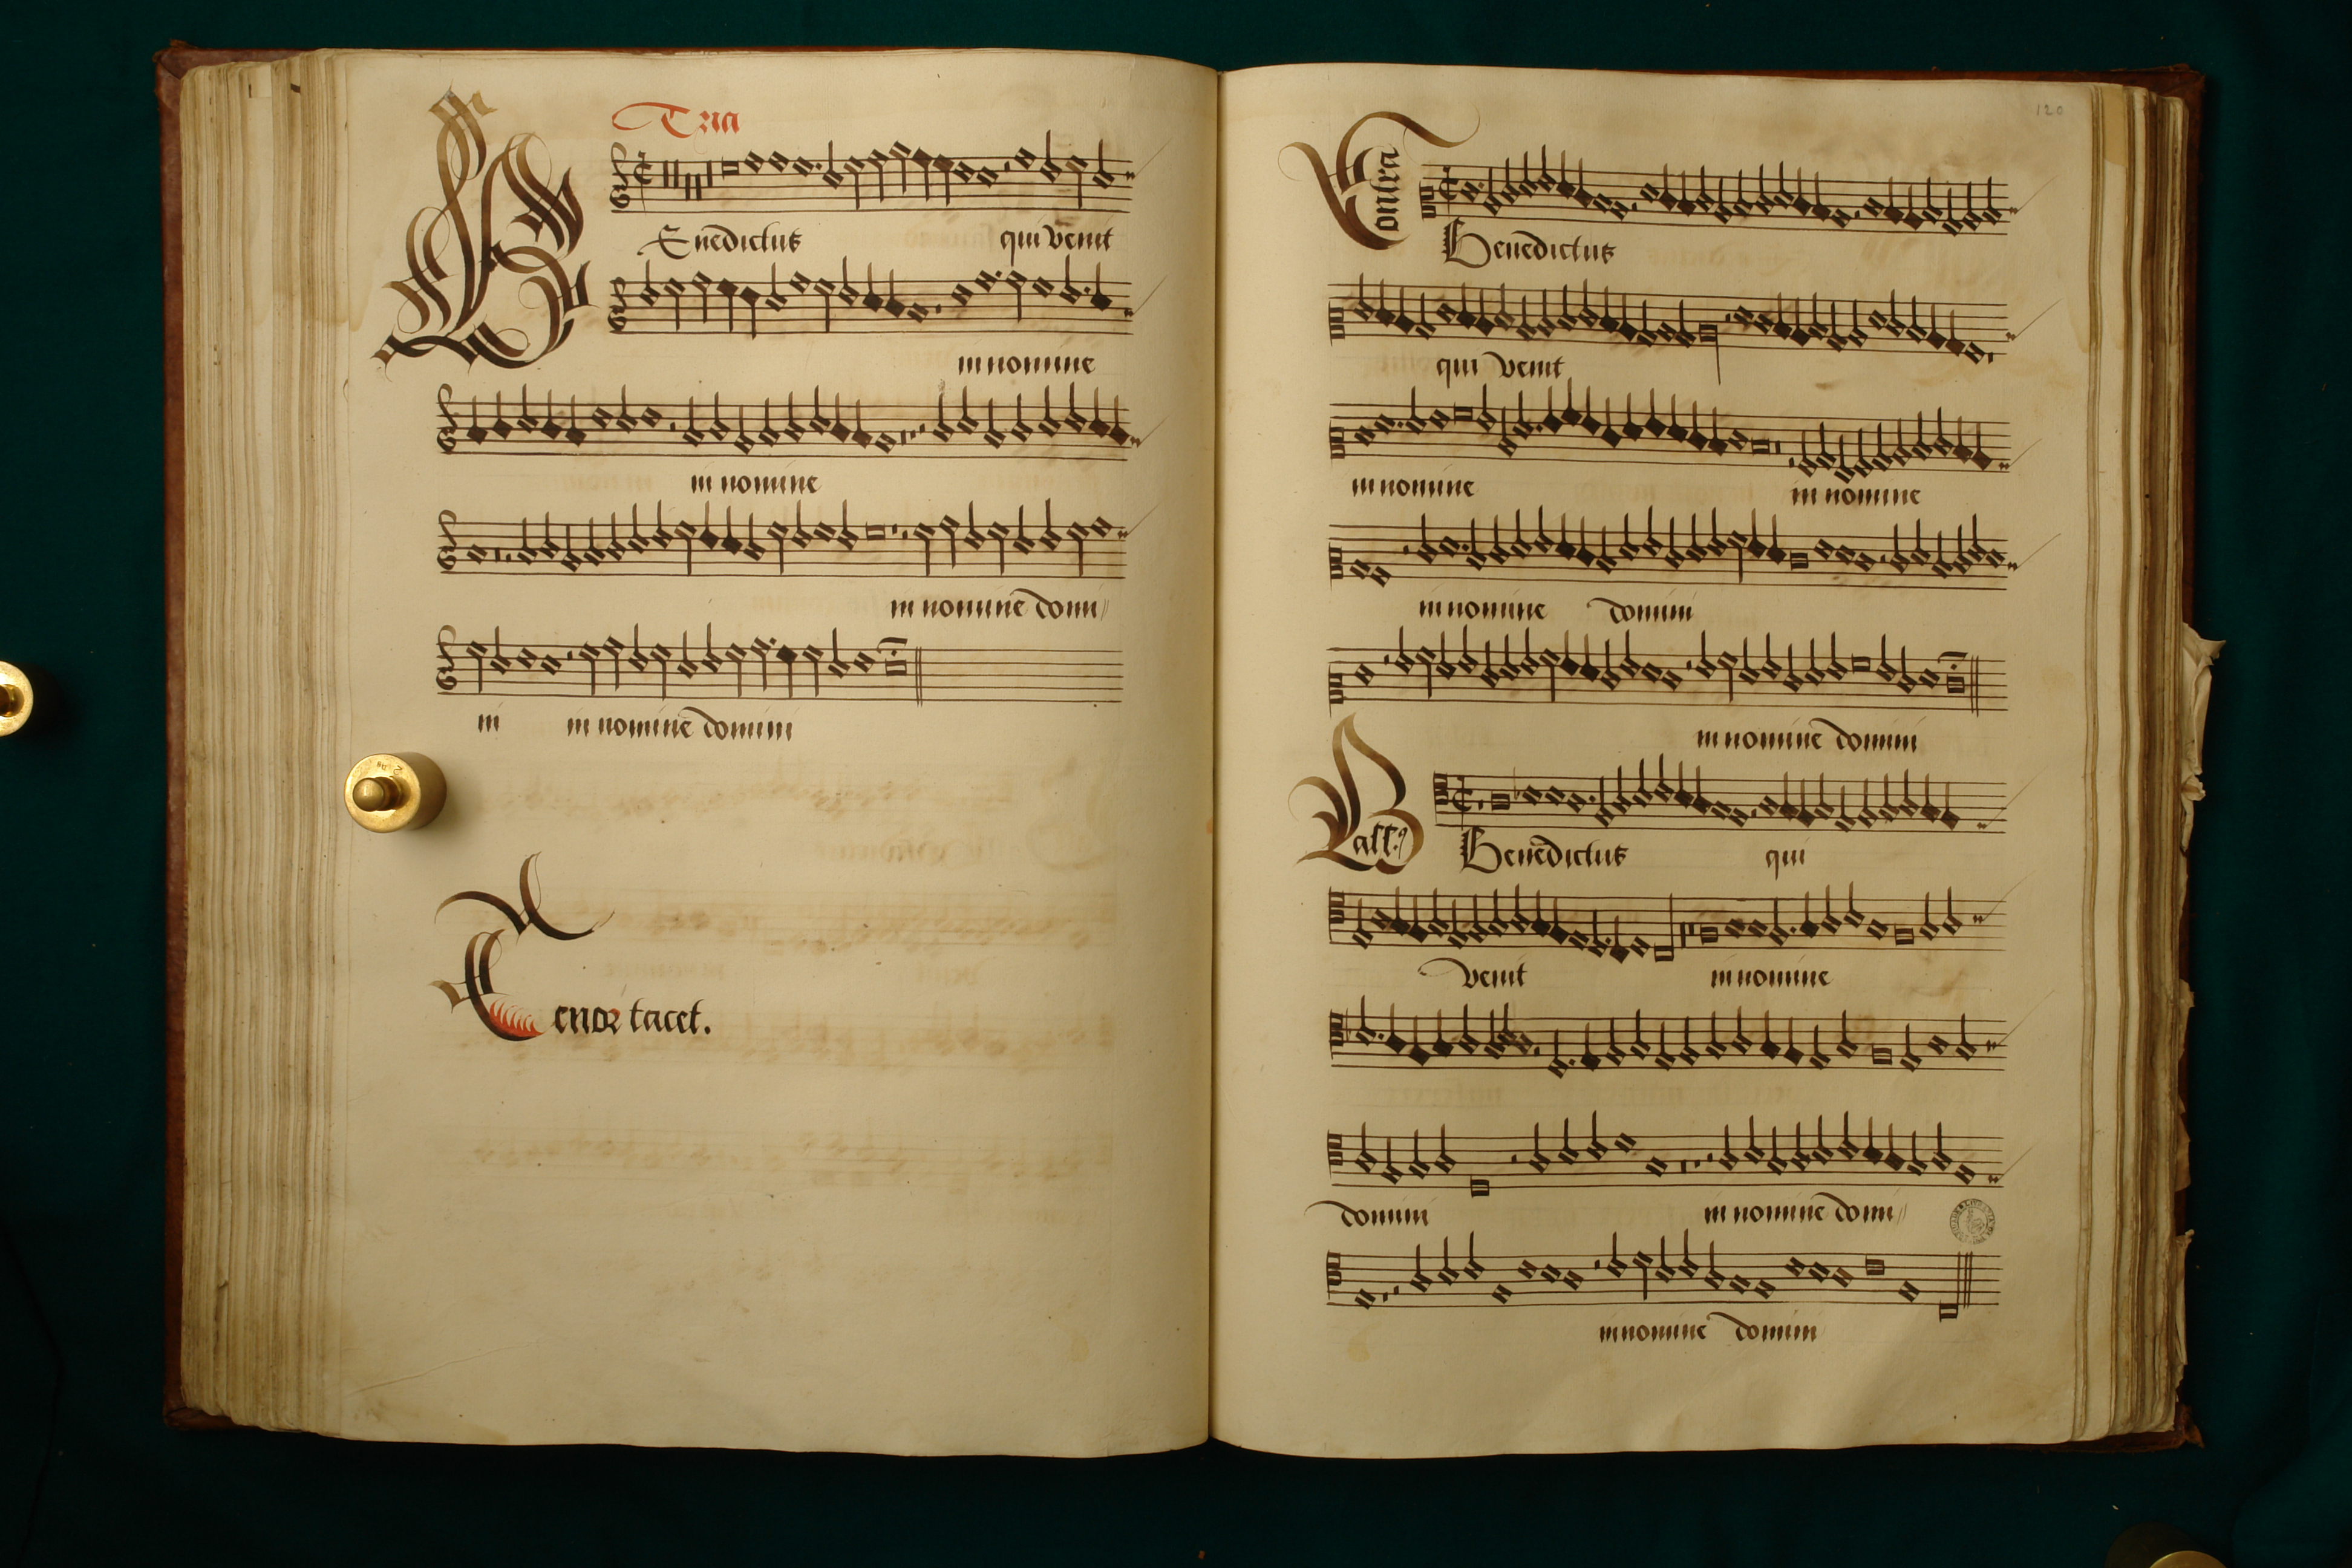 Tria
BEnedictus qui venit
in nomine
in nomine
in nomine domi//
ni in nomine domini
Tenor tacet.
120
Contra
Benedictus
qui venit
in nomine in nomine
in nomine domini
in nomine domini
Bass9
Benedictus qui
venit in nomine
domini in nomine domi//
in nomine domini